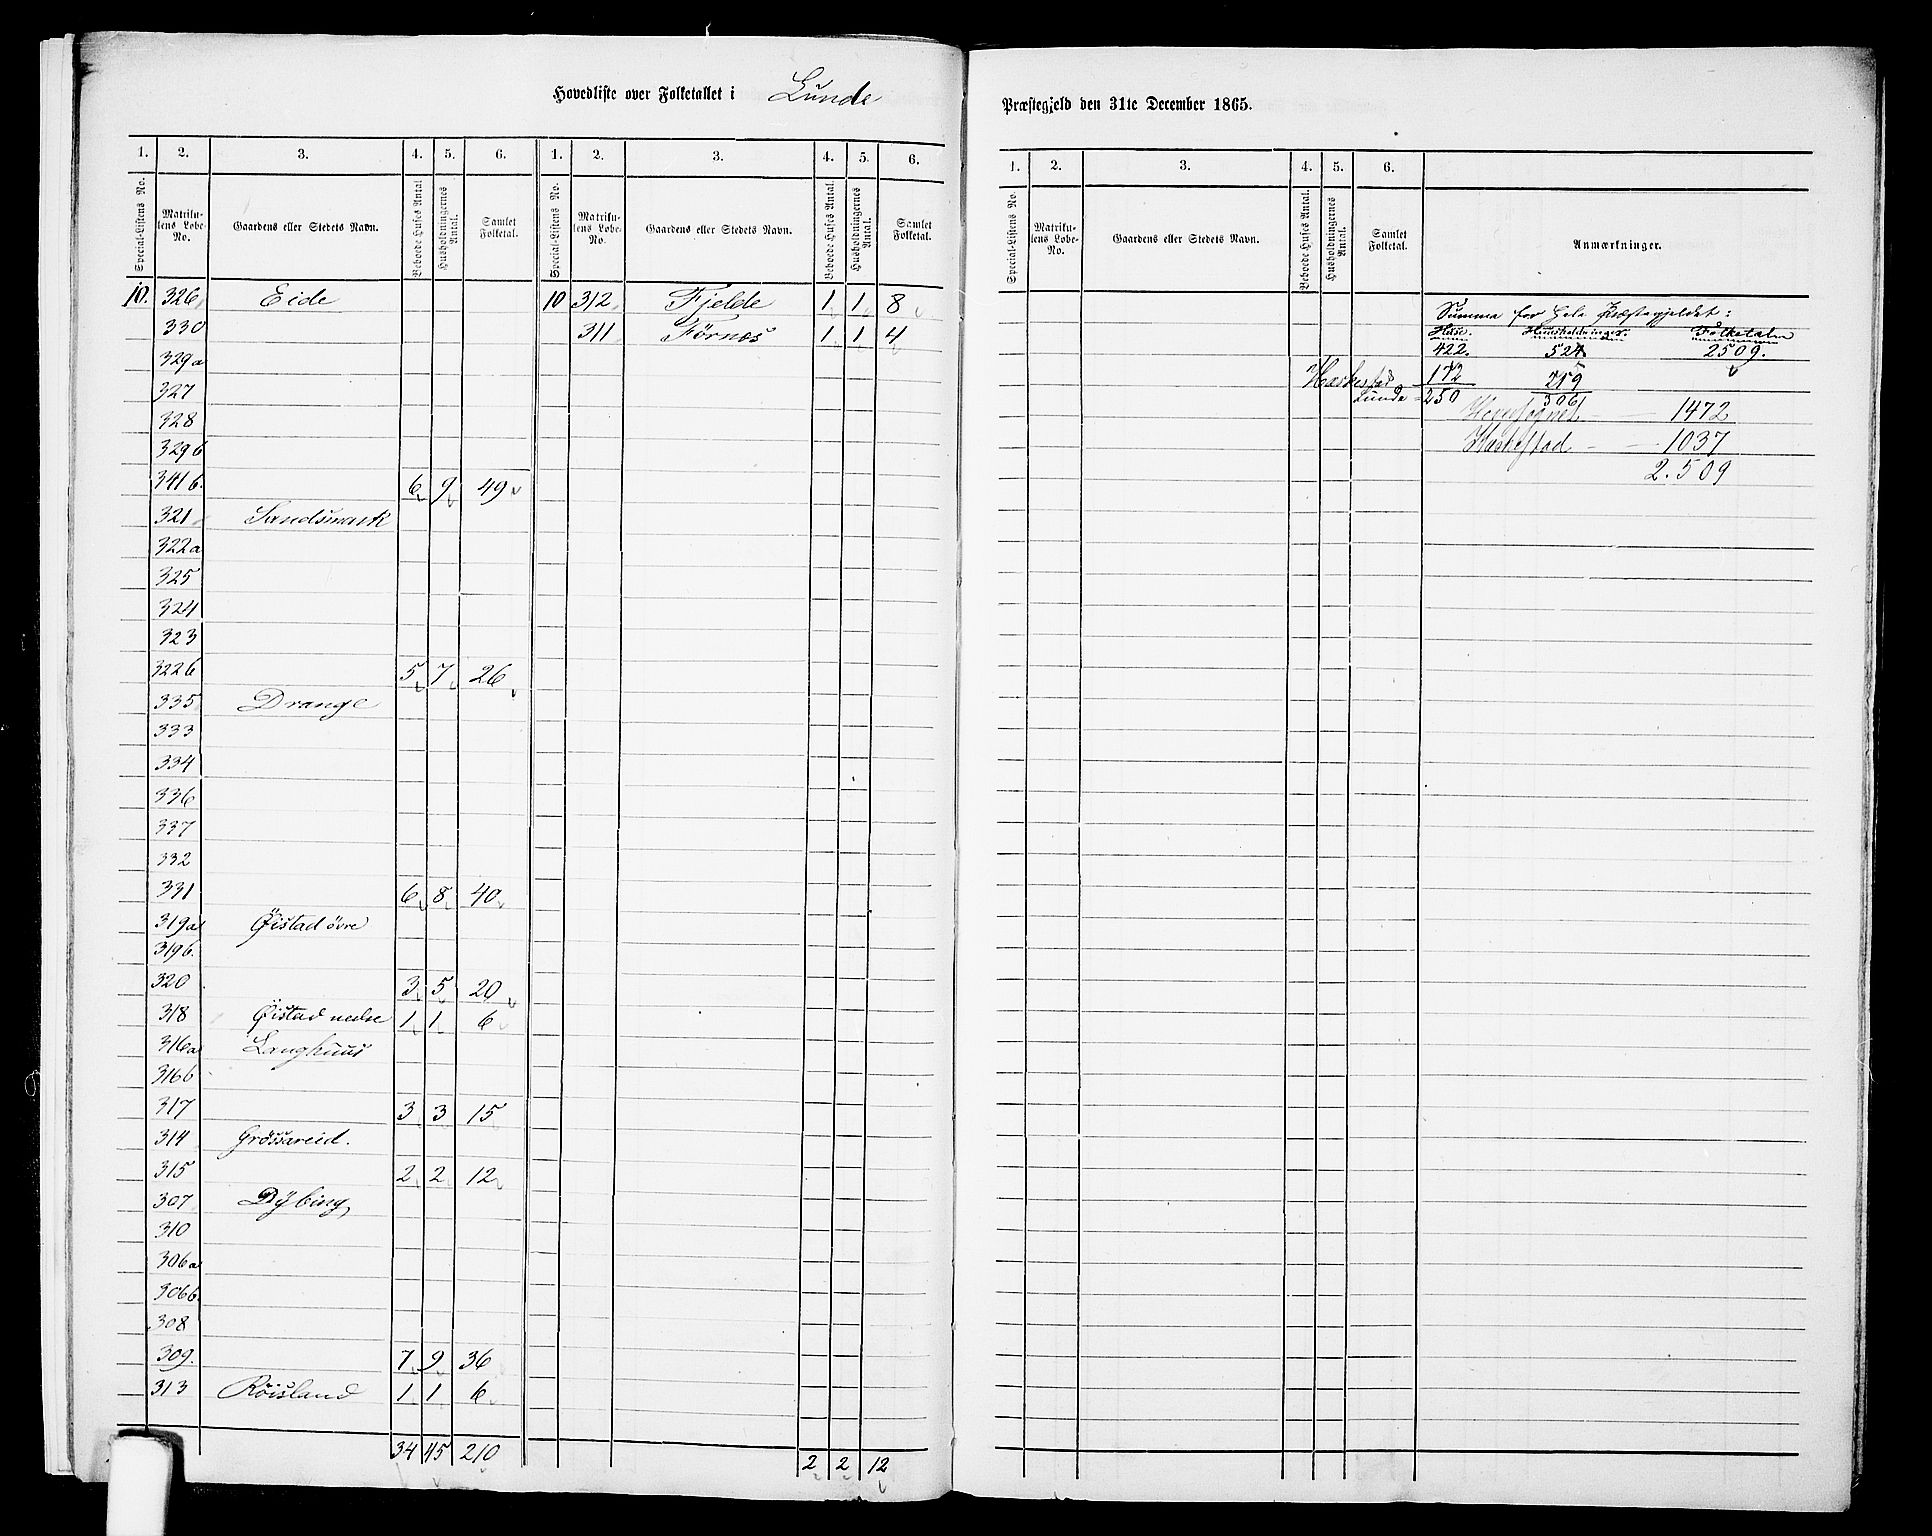 Hovedliste over Folketallet i Lunde
1. 2. 3. 4. 5. 6. 1. 2. 3. 4. 5. 6.
Special-Listens No. Matrikulens Løbe-No. Gaardens eller Stedets Navn. Beboede Huses Antal. Husholdningernes Antal. Samlet Folketal. Special-Listens No. Matrikulens Løbe-No. Gaardens eller Stedets Navn. Beboede Huses Antal. Husholdningernes Antal. Samlet Folketal.
10. 326 Eide 10 312 Fjelde 1 1 8
330 311 Førnes 1 1 4
329a
327
328
329b
341b. 6 9 49
321 Sandsmark
322a
325
324
323
322b 5 7 26
335 Drange
333
334
336
337
332
331 6 8 40
319a Øistad øvre
319b
320 3 5 20
318 Øistad nedre 1 1 6
316a Langhuus
316b
317 3 3 15
314 Grøssareid.
315 2 2 12
307 Dybing
310
306a
306b
308
309. 7 9 36
313 Røisland 1 1 6
34 45 210 2 2 12
Præstegjeld den 31te December 1865.
1. 2. 3. 4. 5. 6.
Special-Listens No. Matrikulens Løbe-No. Gaardens eller Stedets Navn. Beboede Huses Antal. Husholdningernes Antal. Samlet Folketal. Anmærkninger.
Summa for hele Præstegjeldet:
Huse. Huusholdninger. Folketal
422. 524 2509.
Heskestad 172 219
Lunde 250 306
Hovedsognet — 1472
Heskestad — 1037
2.509